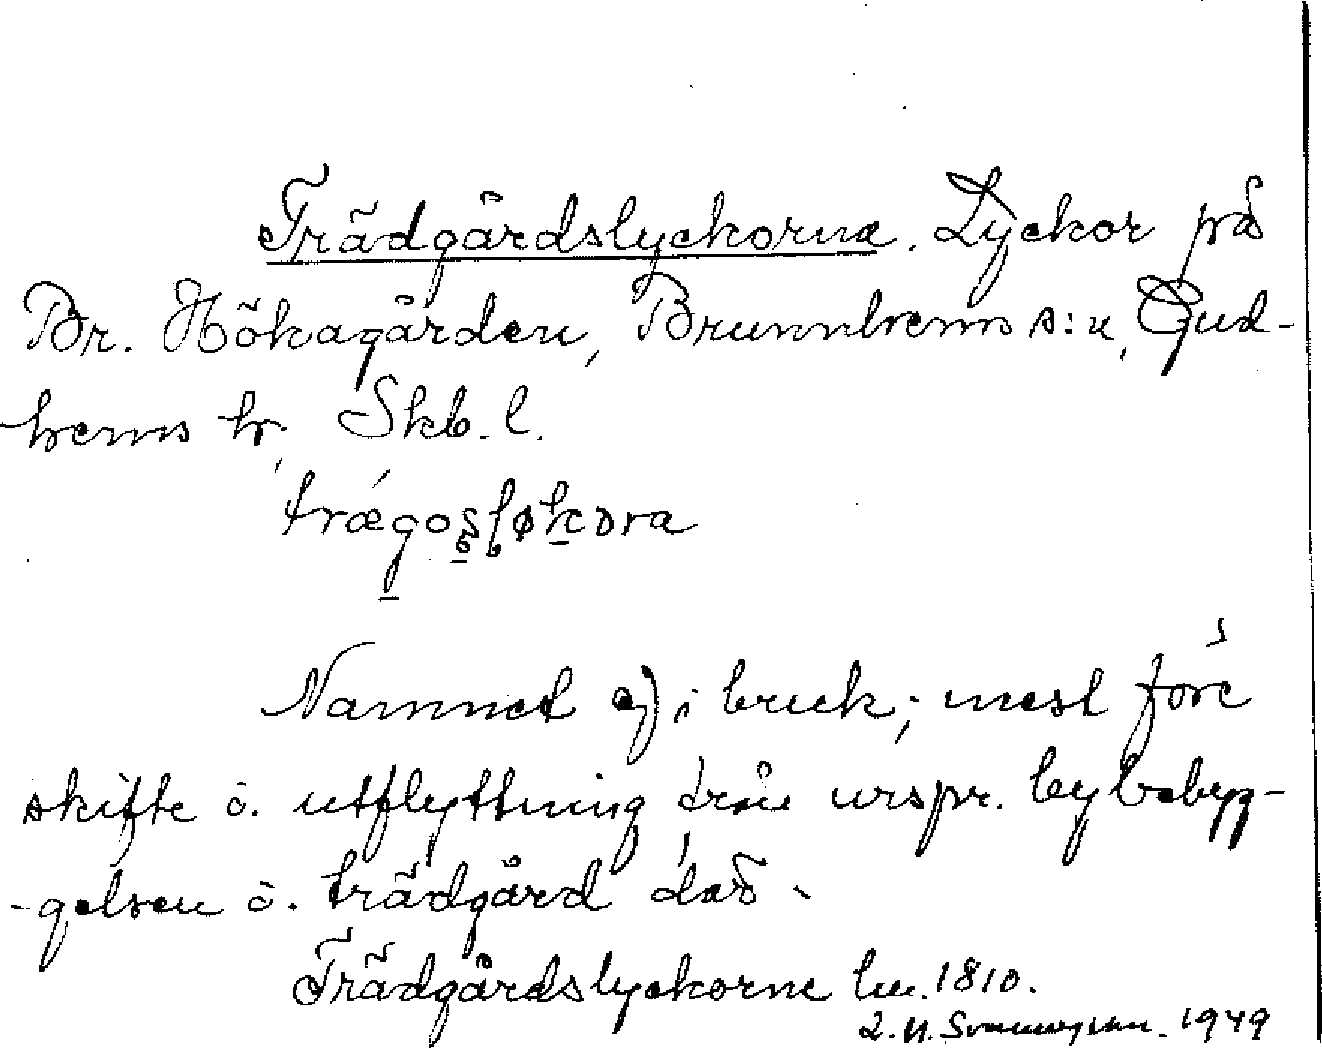 Trädgårdslyckorna. Lyckor på
Br. Hökagården, Brunnhems s:n, Gud-
hems hr, Skb. l.
trægosløkɔra
Namnet ej i bruk; mest före
skifte o. utflyttning från urspr. bybebyg-
-gelsen o. trädgård där.
Trädgårdslyckorne lm. 1810.
1949